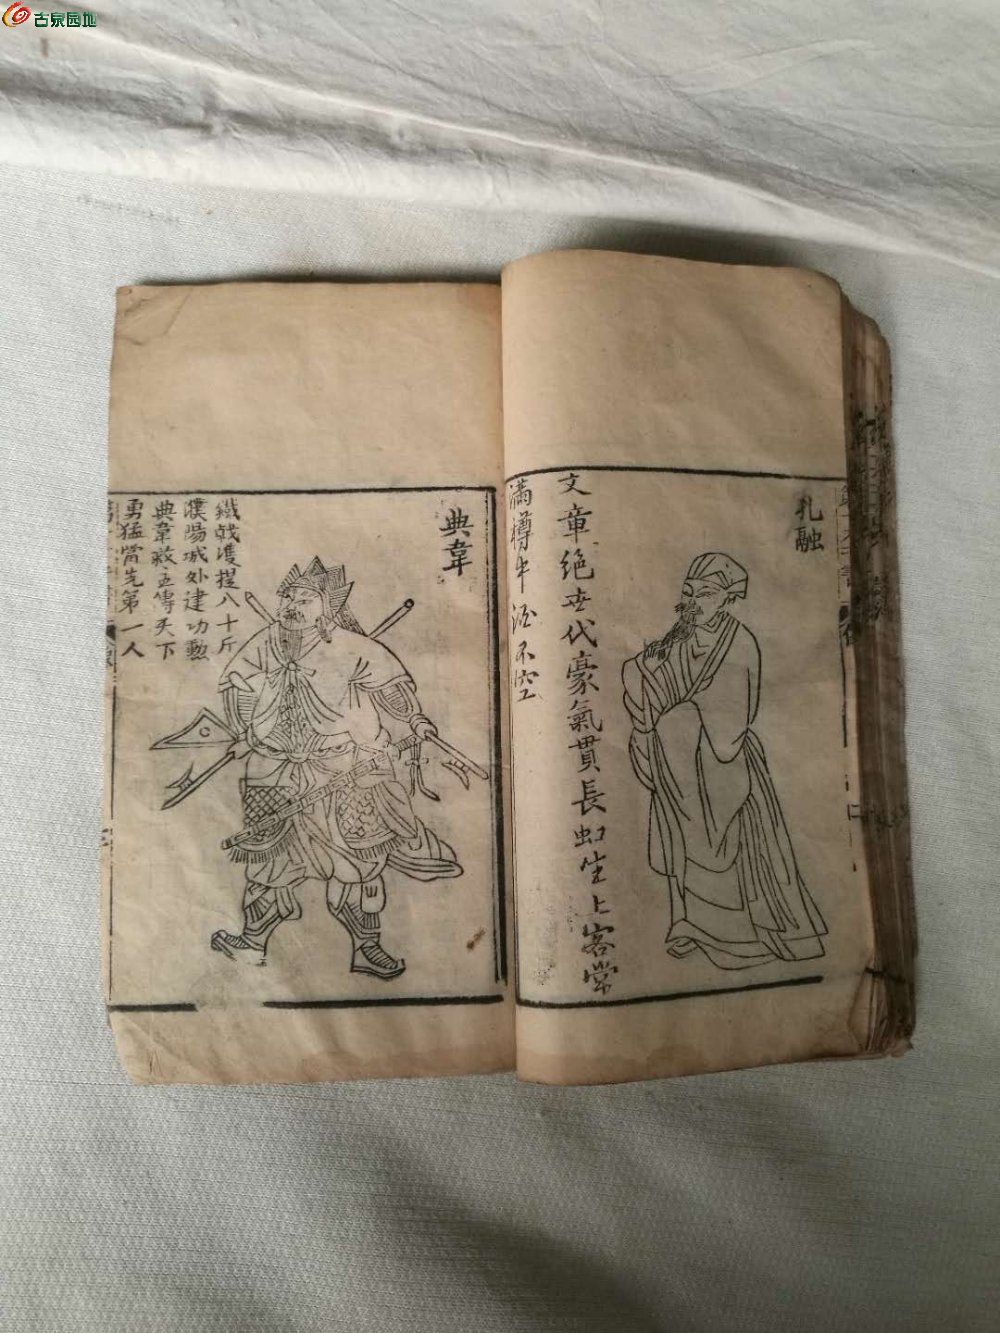 古泉园地
孔融
文章絶世代豪氣貫長虹坐上客常
滿樽中酒不空
典韋
鐵戟雙提八十斤
濮陽城外建功勳
典韋救主傳天下
勇猛當先第一人